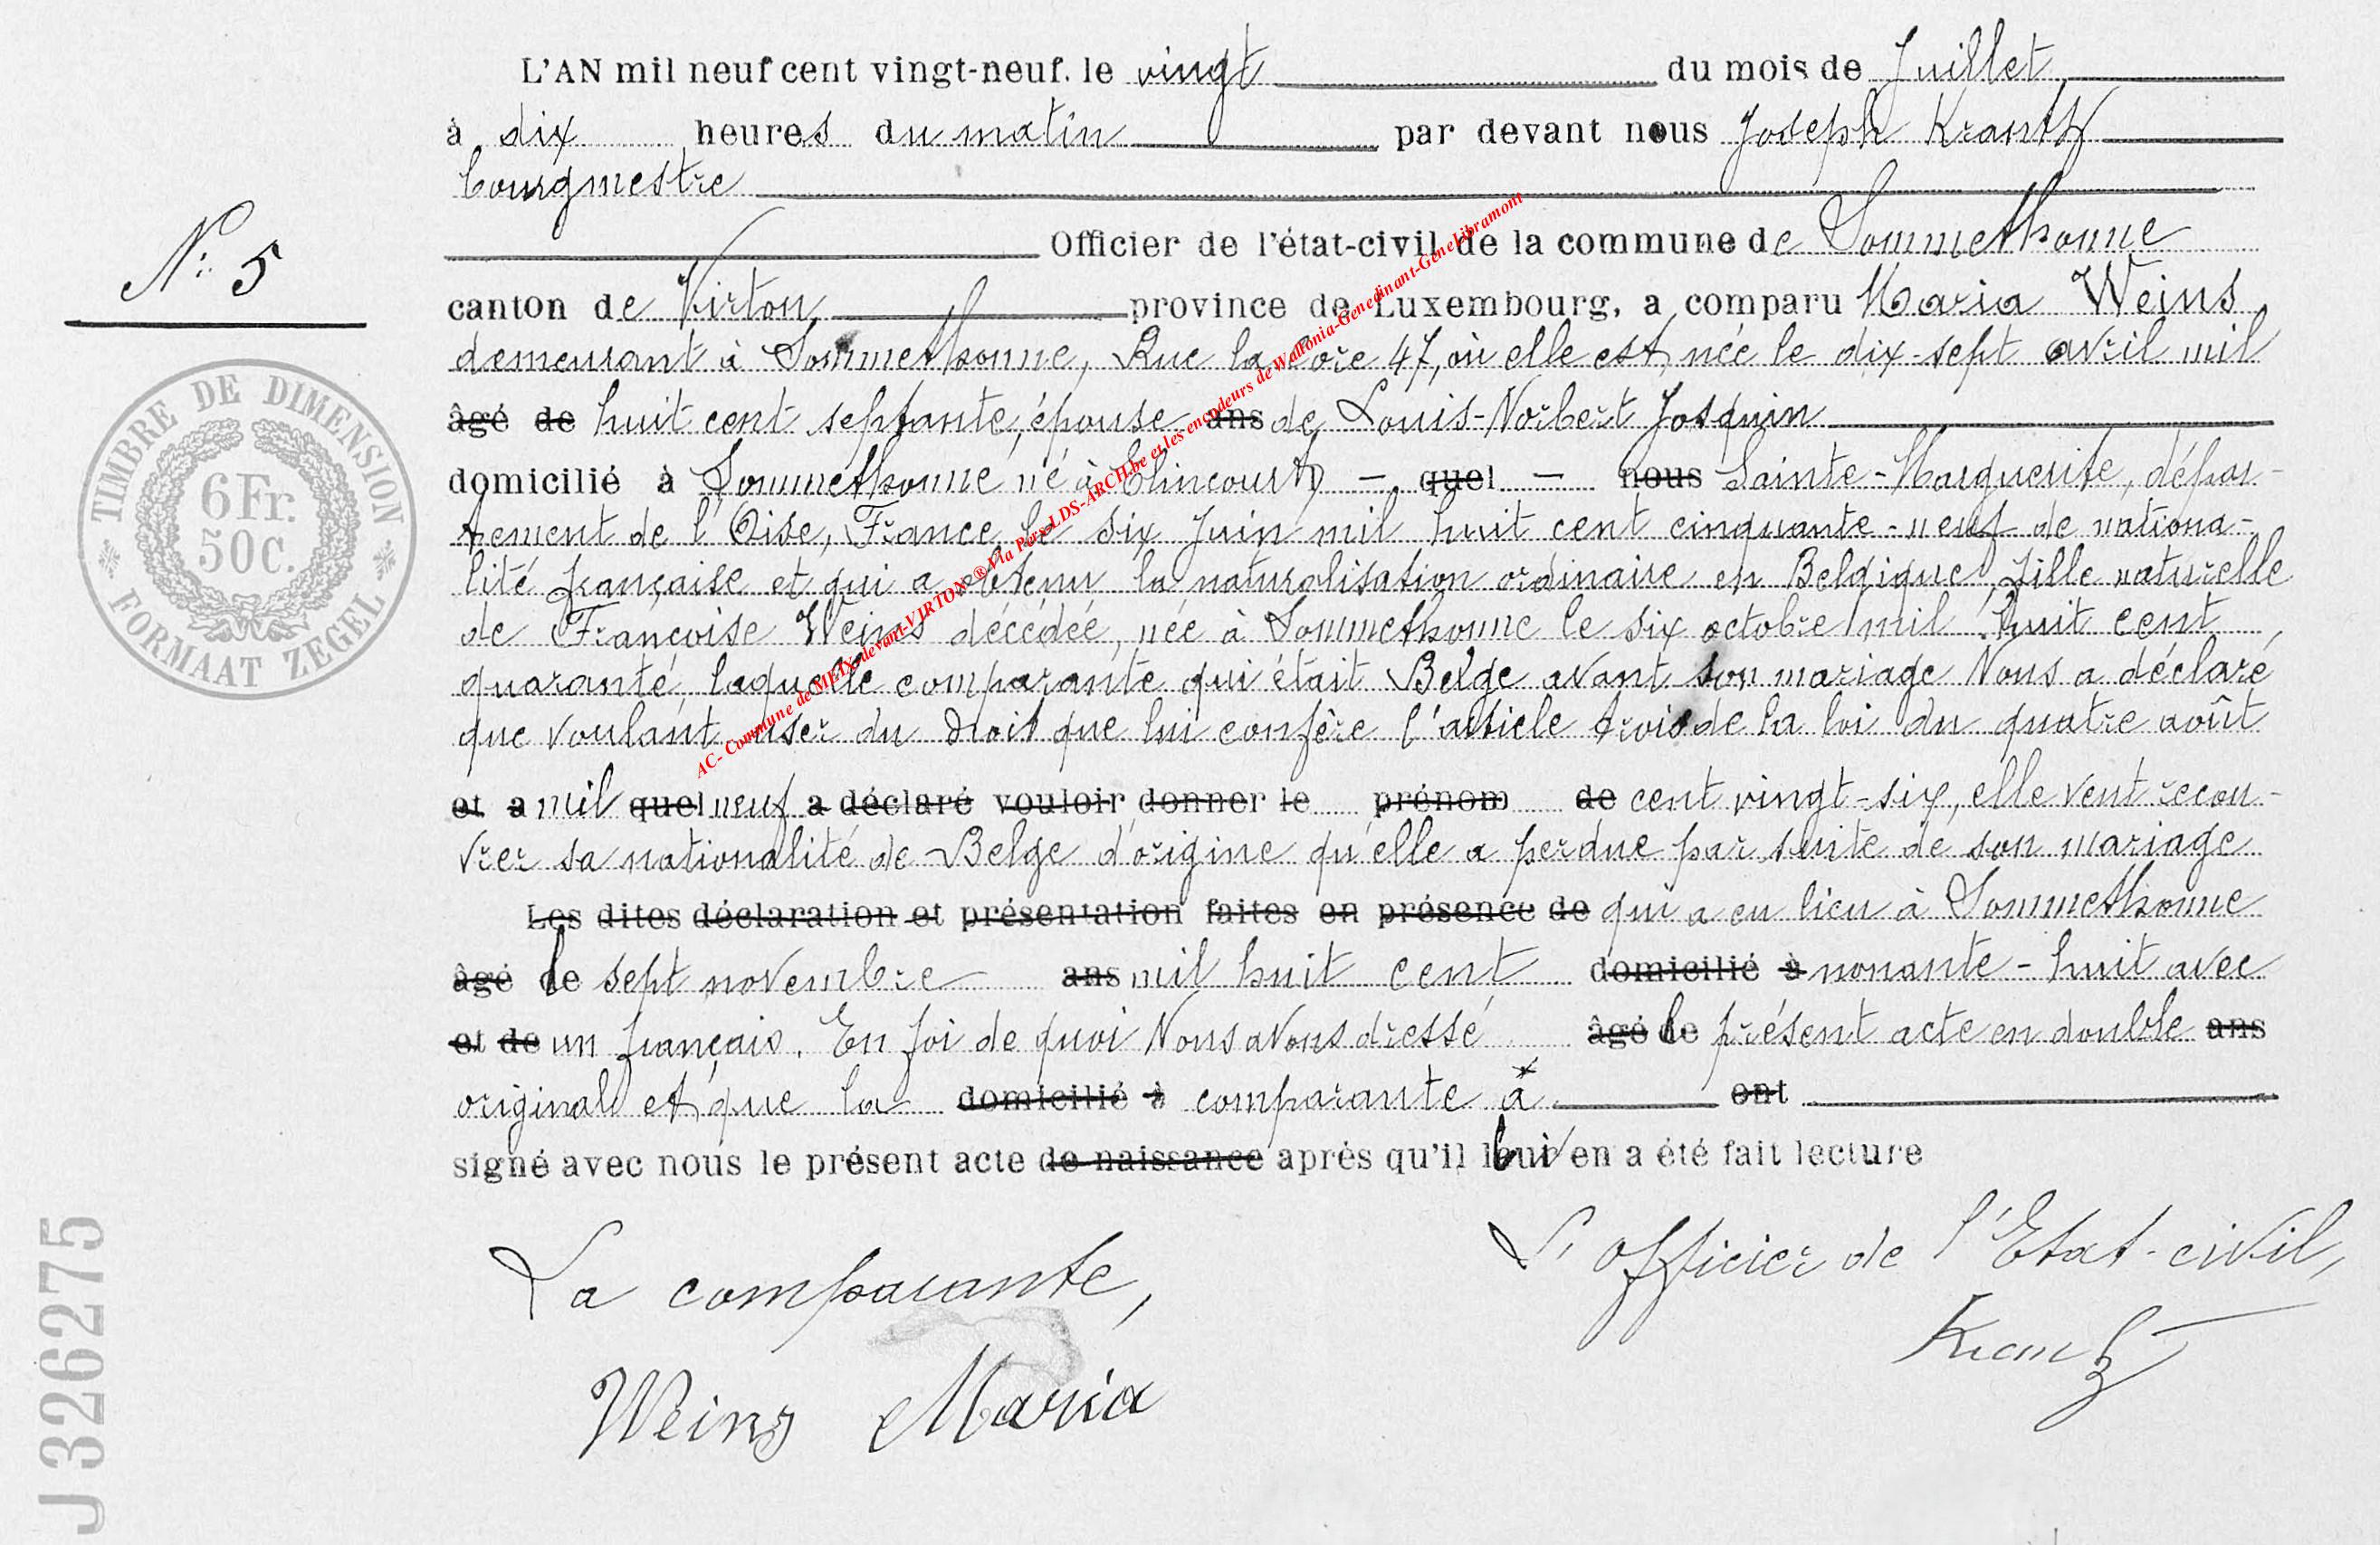 L'AN mil neuf cent vingt-neuf. le vingt du mois de Juillet
à dix heures du matin par devant nous Joseph Krantz
bourgmestre
N° 5
Officier de l'état-civil de la commune de Sommethonne
canton de Virton province de Luxembourg, a comparu Maria Weins
demeurant à Sommethonne, Rue la 47, où elle est née le dix-sept avril mil
âgé de huit cent septante, épouse ans de Louis-Norbert Josquin
domicilié à Sommethonne né à Elincourt – quel – nous Sainte-Marguerite, dépar-
tement de l'Oise, France, le six Juin mil huit cent cinquante-neuf de nationa-
lité française et qui a obtenu la naturalisation ordinaire en Belgique, fille naturelle
de Françoise Weins décédée, née à Sommethonne le six octobre mil huit cent
quarante, laquelle comparante qui était Belge avant son mariage Nous a déclaré
que voulant user du droit que lui confère l'article trois de la loi du quatre août
et a mil quel neuf a déclaré vouloir donner le prénom de cent vingt-six, elle veut recou-
vrer sa nationalité de Belge d'origine qu'elle a perdue par suite de son mariage
Les dites déclaration et présentation faites en présence de qui a eu lieu à Sommethonne
âgé le sept novembre ans mil huit cent domicilié à nonante-huit avec
et de un français. En foi de quoi Nous avons dressé âgé le présent acte en double ans
original et que la domicilié à comparante à ont
signé avec nous le présent acte de naissance après qu'il lui en a été fait lecture
La comparante,
L'officier de l'Etat-civil,
Krantz
Weins Maria
TIMBRE DE DIMENSION
6 Fr.
50 C.
FORMAAT ZEGEL
J 326275
AC- Commune de MEIX-devant-VIRTON-® Via Pers-LDS-ARCH.be et les encodeurs de Wallonia-Genedinant-GeneLibramont